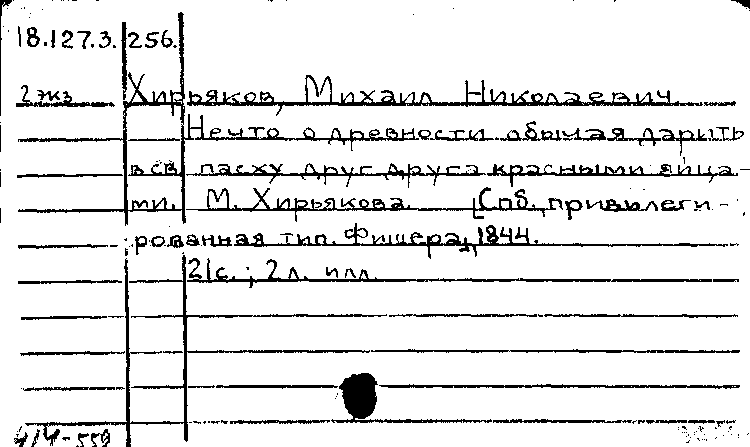 18.127.3. 256.
2 экз Хирьяков, Михаил Николаевич
Нечто о древности обычая дарить
в св. пасху друг друга красными яйца-
ми. М. Хирьякова. [Спб., привилеги-
рованная тип. Фишера], 1844.
21с.; 2 л. илл.
414-559